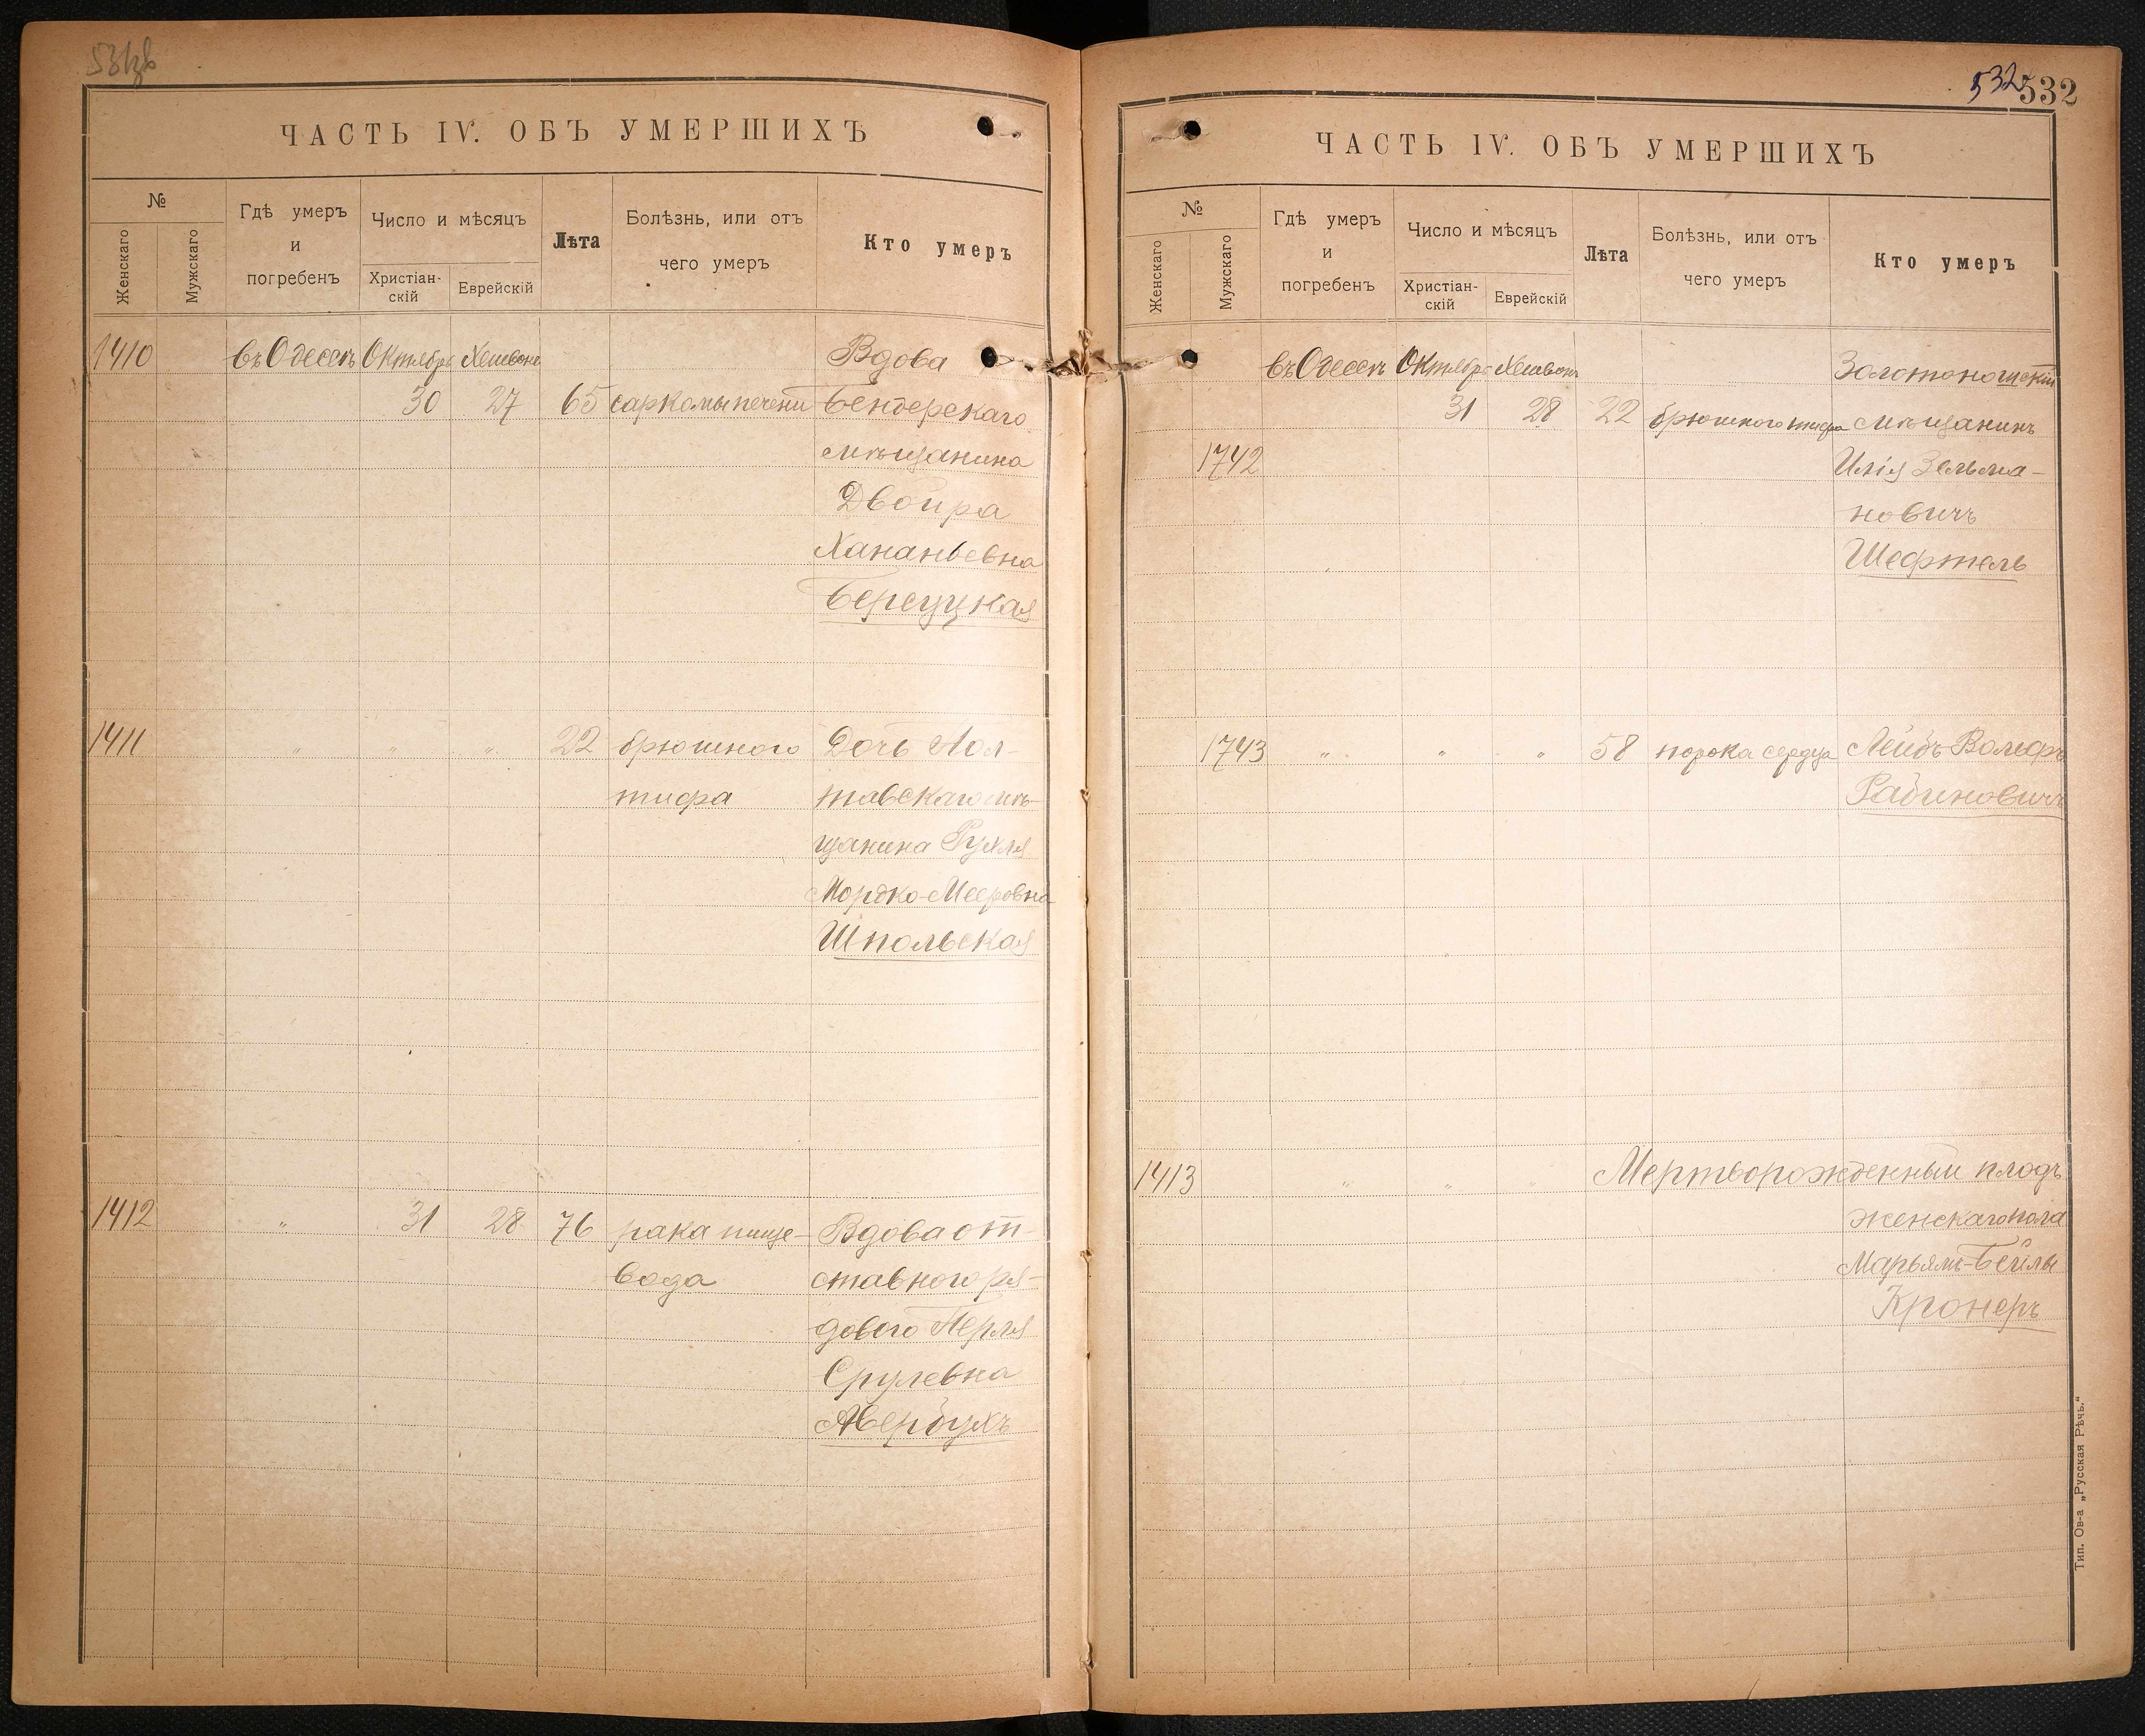 ЧАСТЬ IV. ОБЪ УМЕРШИХЪ
№
Женскаго
Мужскаго
Гдѣ умеръ
и
погребенъ
Число и мѣсяцъ
Христіан-
скій
Еврейскій
Лѣта
Болѣзнь, или отъ
чего умеръ
Кто умеръ
1410 въ Одессѣ Октябрь Хешвонъ Вдова
30 27 65 саркомы печени Бендерскаго
мѣщанина
Двойра
Хананьевна
Берецкая
1411 " " " 22 брюшного Дочь Пол-
тифа тавскаго мѣ-
щанина Рухля
Мордко-Мееровна
Шпольская
1412 " 31 28 76 рака пище- Вдова от-
вода ставного ря-
дового Перля
Срулевна
Авербухъ
532 532
ЧАСТЬ IV. ОБЪ УМЕРШИХЪ
№
Женскаго
Мужскаго
Гдѣ умеръ
и
погребенъ
Число и мѣсяцъ
Христіан-
скій
Еврейскій
Лѣта
Болѣзнь, или отъ
чего умеръ
Кто умеръ
въ Одессѣ Октябрь Хешвонъ Золотоношскій
31 28 22 брюшного тифа мѣщанинъ
1742 Илія Зельма-
новичъ
Шефтель
1743 " " " 58 порока сердца Лейбъ Волфъ
Рабиновичъ
1413 " " " Мертворожденный плодъ
женскаго пола
Марьямъ-Бейлы
Кронеръ
Тип. Ов-а „Русская Рѣчь."